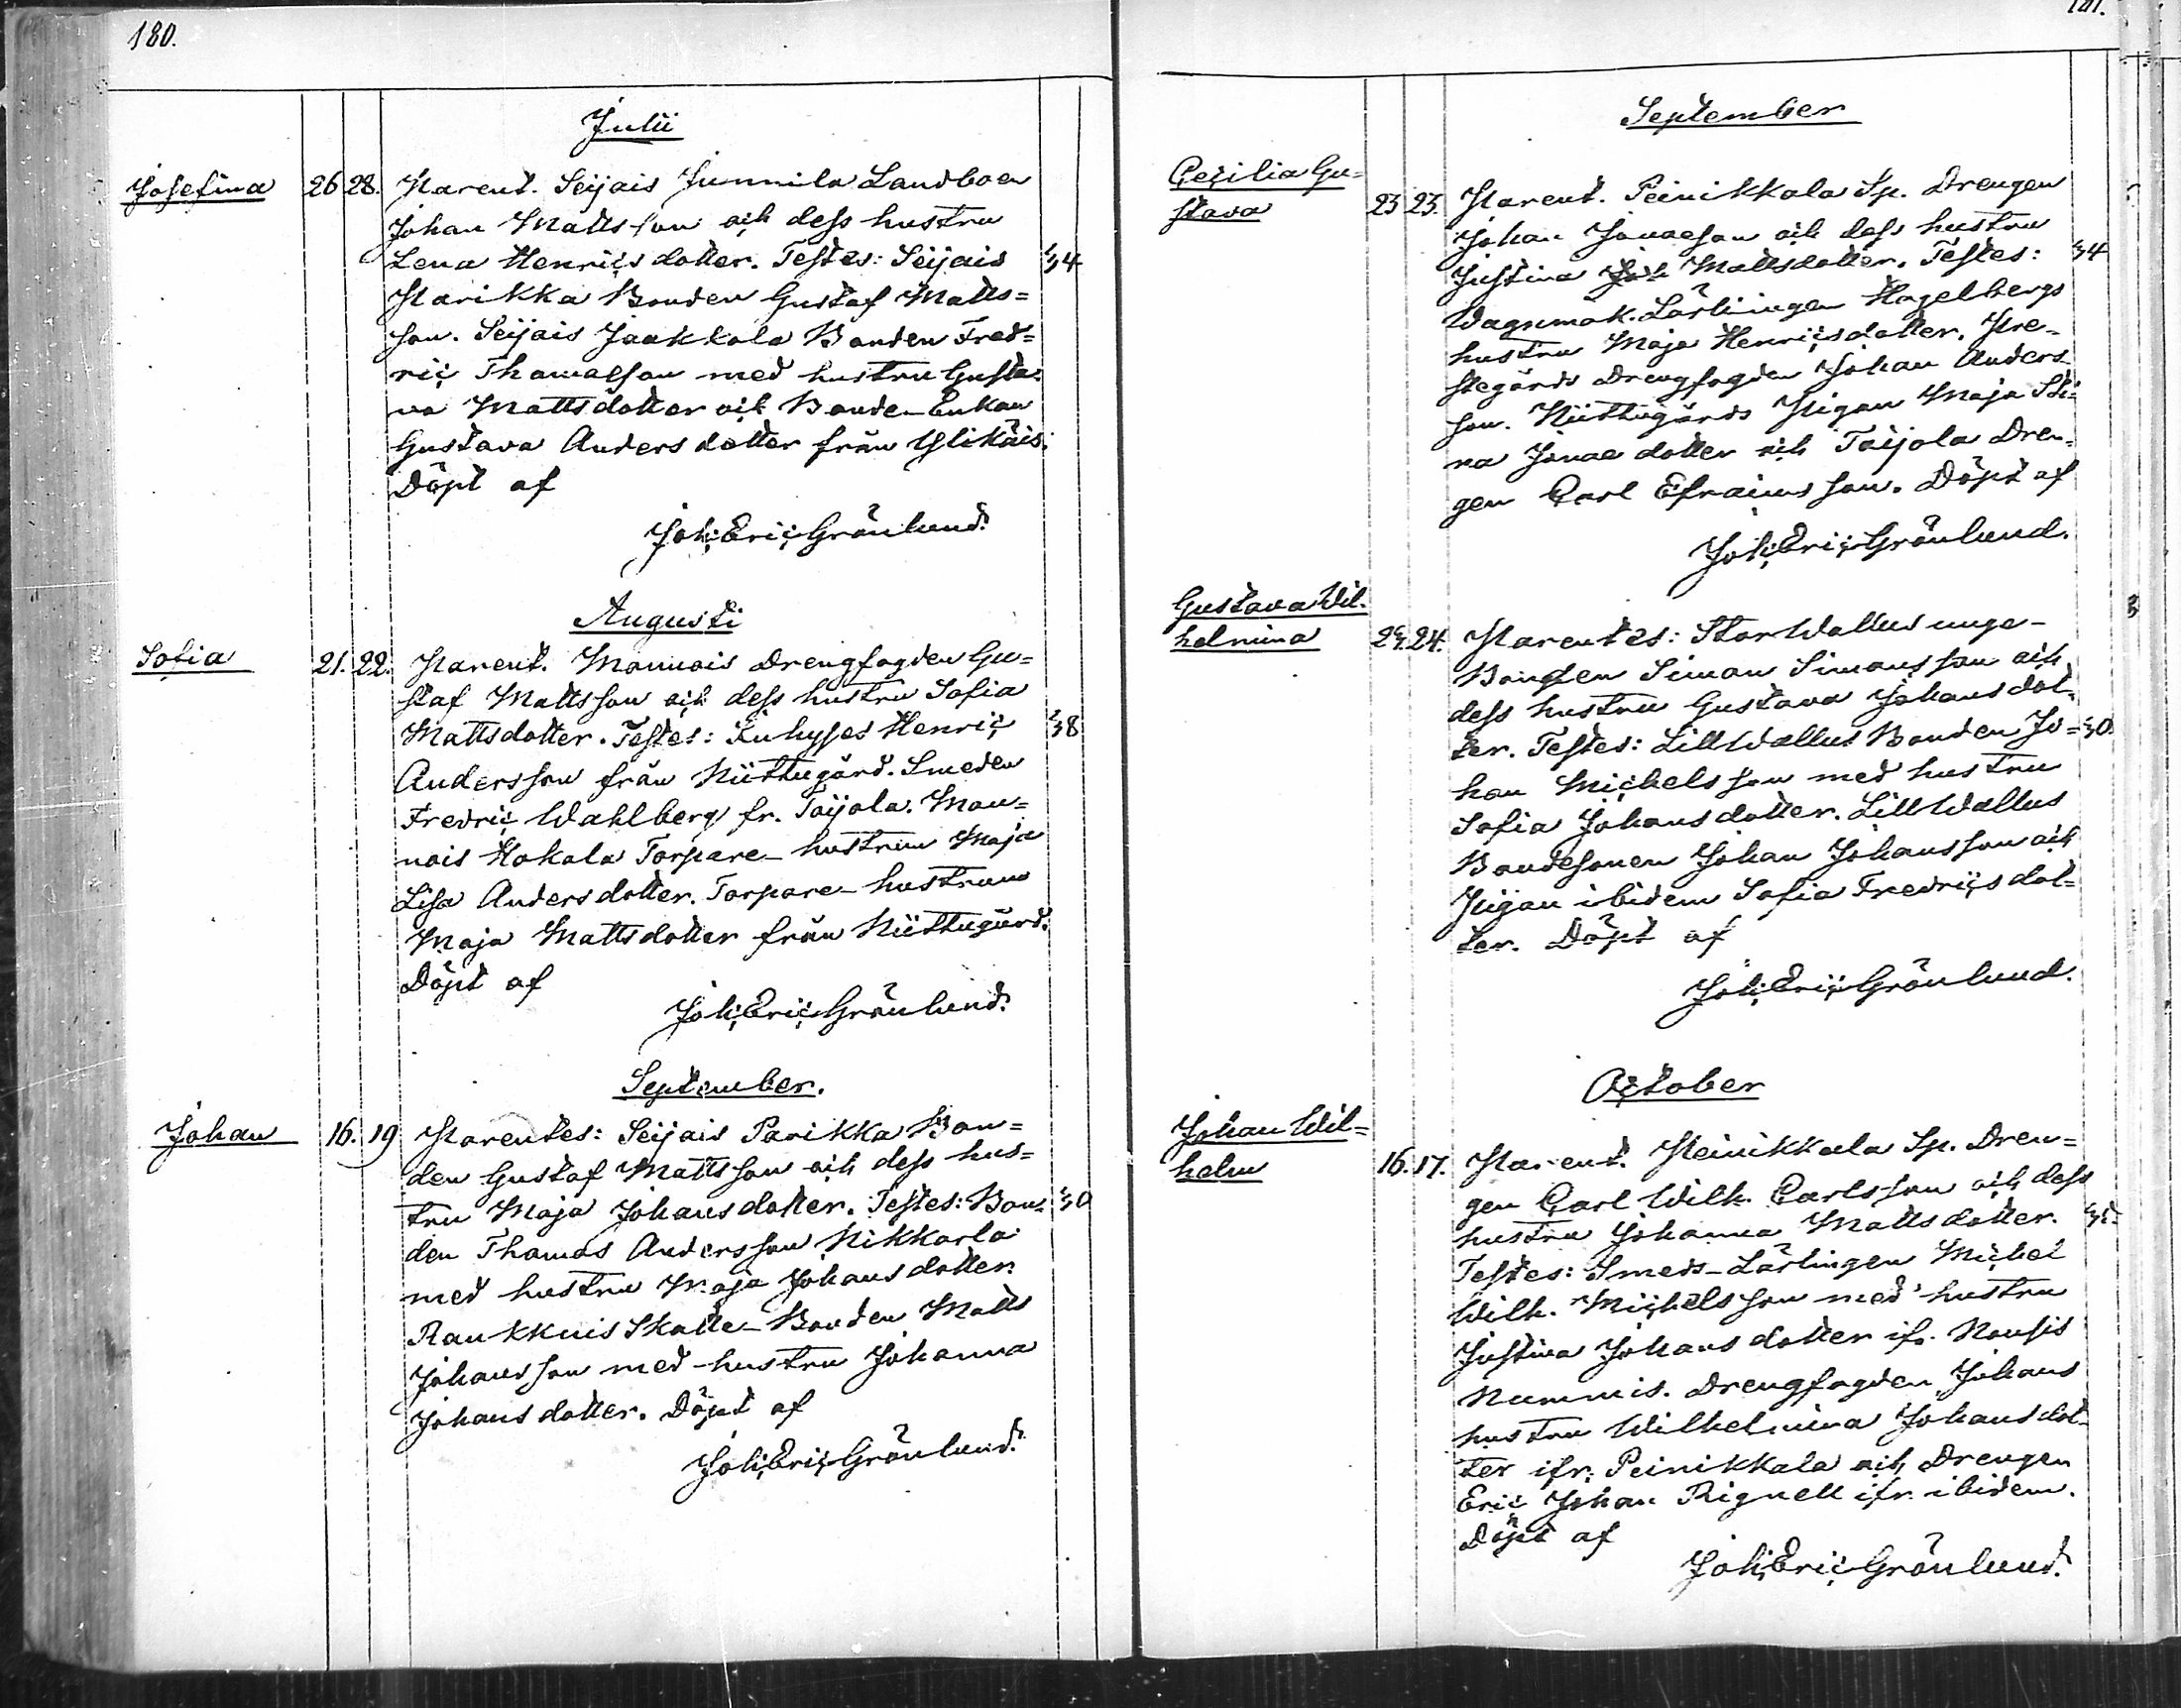 180.
Julii
Josefina 26 28. Parent. Seijais Junnila Landboen
Johan Mattsson och dess hustru
Lena Henricsdotter. Testes: Seijais 34
Parikka Bonden Gustaf Matts=
son. Seijais Jaakkola Bonden Fred=
ric Thomasson med hustru Gusta=
va Mattsdotter och Bonde-Enkan
Gustava Andersdotter från Ylikäis.
Döpt af
Joh: Eric Grönlund.
Augusti
Sofia 21. 22. Parent. Monnois Drengfogden Gu=
staf Mattsson och dess hustru Sofia
Mattsdotter. Testes: Inhyses Henric 38
Andersson från Niittugård. Smeden
Fredric Wahlberg fr. Toijola. Mon=
nois Hokala Torpare-hustrun Maja
Lisa Andersdotter. Torpare-hustrun
Maja Mattsdotter från Niittugård.
Döpt af
Joh: Eric Grönlund.
September.
Johan 16. 19 Parentes: Seijais Parikka Bon=
den Gustaf Mattsson och dess hus=
tru Maja Johansdotter. Testes: Bon= 30
den Thomas Andersson Nikkarla
med hustru Maja Johansdotter.
Raukkuis Skatte-Bonden Matts
Johansson med hustru Johanna
Johansdotter. Döpt af
Joh: Eric Grönlund.
181.
September
Cecilia Gu=
stava 23 25. Parent. Peinikkala Sp. Drengen
Johan Jonasson och dess hustru
Justina Mattsdotter. Testes: 34
Wagnmak. Lärlingen Hagelbergs
hustru Maja Henricsdotter. Pre=
stegårds Drengfogden Johan Anders=
son. Niittugårds Pigan Maja Sti=
na Jonasdotter och Toijola Dren=
gen Carl Efraimsson. Döpt af
Joh: Eric Grönlund.
Gustava Wil=
helmina 24. Parentes: Stor Wallus unge-
Bonden Simon Simonsson och
dess hustru Gustava Johansdot=
ter. Testes: Lill Wallus Bonden Jo= 30
han Michelsson med hustru
Sofia Johansdotter. Lill Wallus
Bondesonen Johan Johansson och
Pigan ibidem Sofia Fredricsdot=
ter. Döpt af
Joh: Eric Grönlund.
October
Johan Wil=
helm 16. 17. Parent. Peinikkala Sp. Dren=
gen Carl Wilh. Carlsson och dess
hustru Johanna Mattsdotter.
Testes: Smeds-Lärlingen Michel
Wilh. Michelsson med hustru
Justina Johansdotter ifr. Nousis
Nummis. Drengfogden Johans
hustru Wilhelmina Johansdot=
ter ifr. Peinikkala och Drengen
Eric Johan Rignell ifr. ibidem.
Döpt af
Joh: Eric Grönlund.